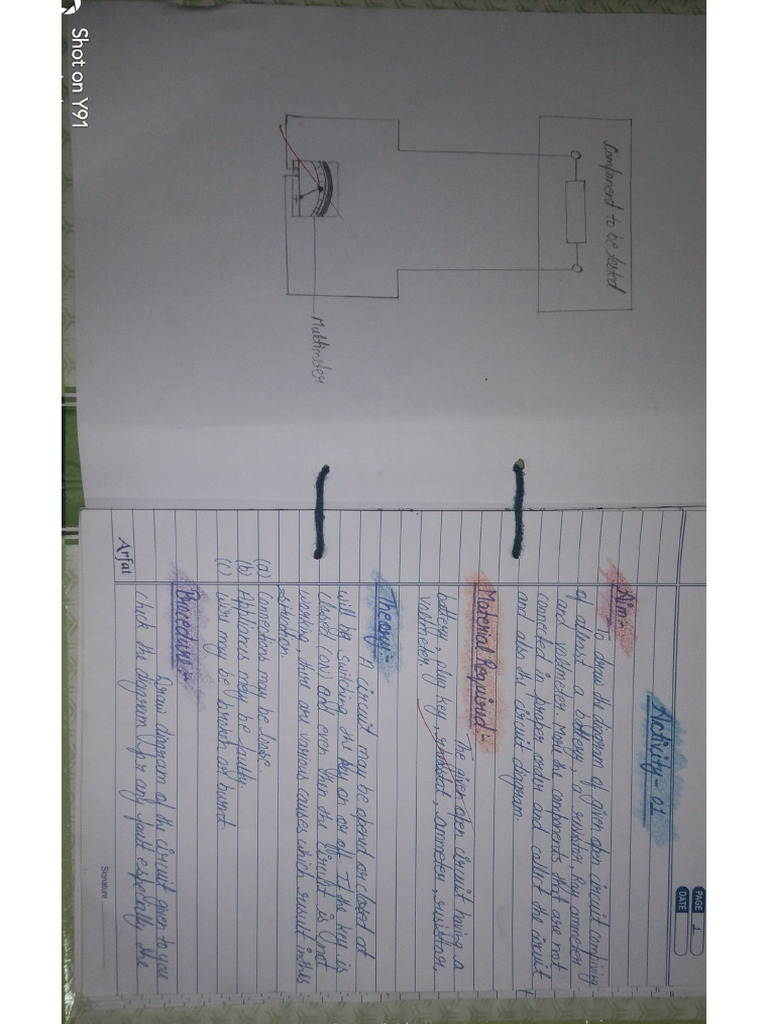 Component to be tested
Multimeter
PAGE 1
DATE
Activity - 01
Aim:-
To draw the diagram of given open circuit comprising
of atleast a battery, a resistor, key, ammeter
and voltmeter. Mark the components that are not
connected in proper order and correct the circuit
and also the circuit diagram.
Material Required:-
The given open circuit having a
battery, plug key, rheostat, ammeter, resistor,
voltmeter.
Theory:-
A circuit may be opend or closed at
will be switching the key on or off. If the key is
closed (on) and even then the circuit is not
working, there are various causes which result in this
situation.
(a) Connections may be loose.
(b) Appliances may be faulty.
(c) Wire may be broken or burnt.
Procedure:-
Draw diagram of the circuit given to you
check the diagram for any fault especially the
Arfat
Signature
Shot on Y91